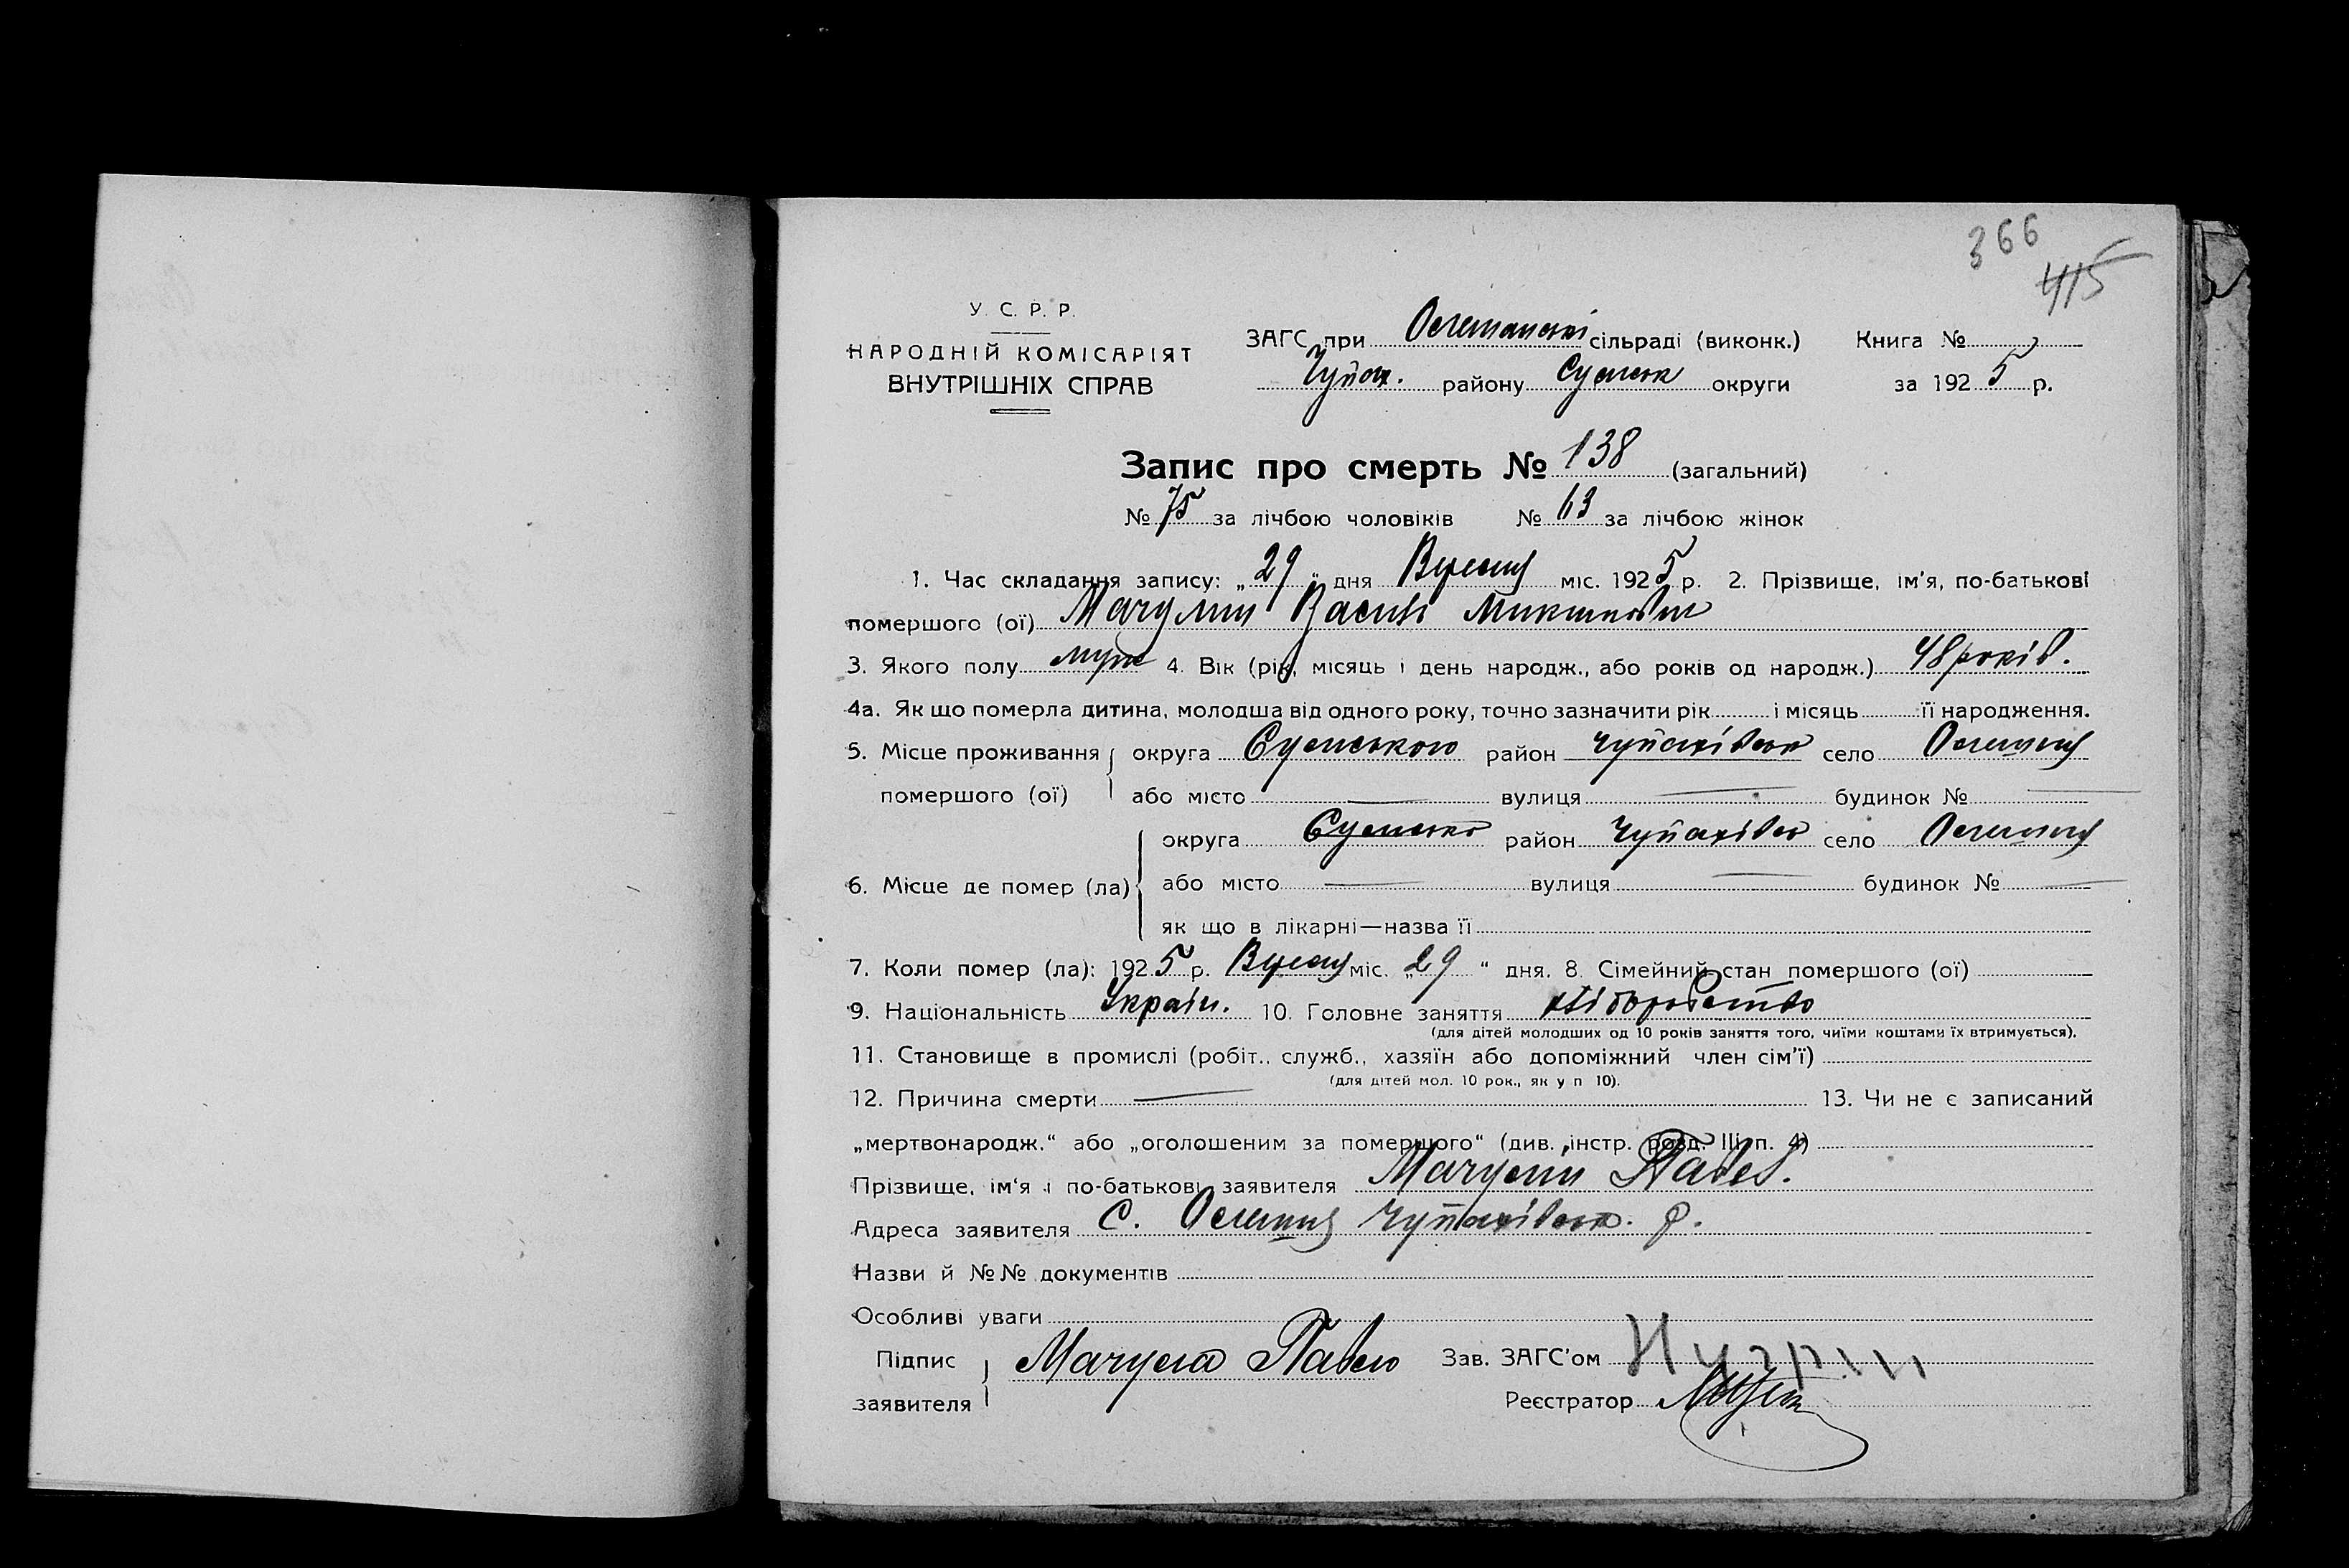 366
415
У. С. Р. Р.
НАРОДНІЙ КОМІСАРІЯТ
ВНУТРІШНІХ СПРАВ
ЗАГС при сільраді (виконк.) Книга №
Чупах. району Сумськ округи за 1925 р.
Запис про смерть № 138 (загальний)
№ 75 за лічбою чоловіків № 63 за лічбою жінок
1. Час складання запису: „29“ дня Вересня міс. 1925 р. 2. Прізвище, ім'я, по-батькові
помершого (ої) Василь
3. Якого полу муж 4. Вік (рік, місяць і день народж., або років од народж.) 48 років.
4а. Як що померла дитина, молодша від одного року, точно зазначити рік і місяць її народження.
5. Місце проживання округа Сумською район Чупахівськ село
помершого (ої) або місто — вулиця — будинок № —
округа Сумсько район Чупахівсь село
6. Місце де помер (ла) або місто — вулиця — будинок № —
як що в лікарні—назва її
7. Коли помер (ла): 1925 р. Вересня міс. „29“ дня. 8. Сімейний стан помершого (ої)
9. Національність Україн. 10. Головне заняття хліборобство
(для дітей молодших од 10 років заняття того, чиїми коштами їх втримується).
11. Становище в промислі (робіт., служб., хазяїн або допоміжний член сім'ї)
(для дітей мол. 10 рок., як у п 10).
12. Причина смерти — 13. Чи не є записаний
„мертвонародж.“ або „оголошеним за помершого“ (див. інстр. розд. III п. 4)
Прізвище, ім'я і по-батькові заявителя Павел.
Адреса заявителя С. Чупахівськ. р.
Назви й №№ документів
Особливі уваги
Підпис Павло Зав. ЗАГС'ом
заявителя Реєстратор